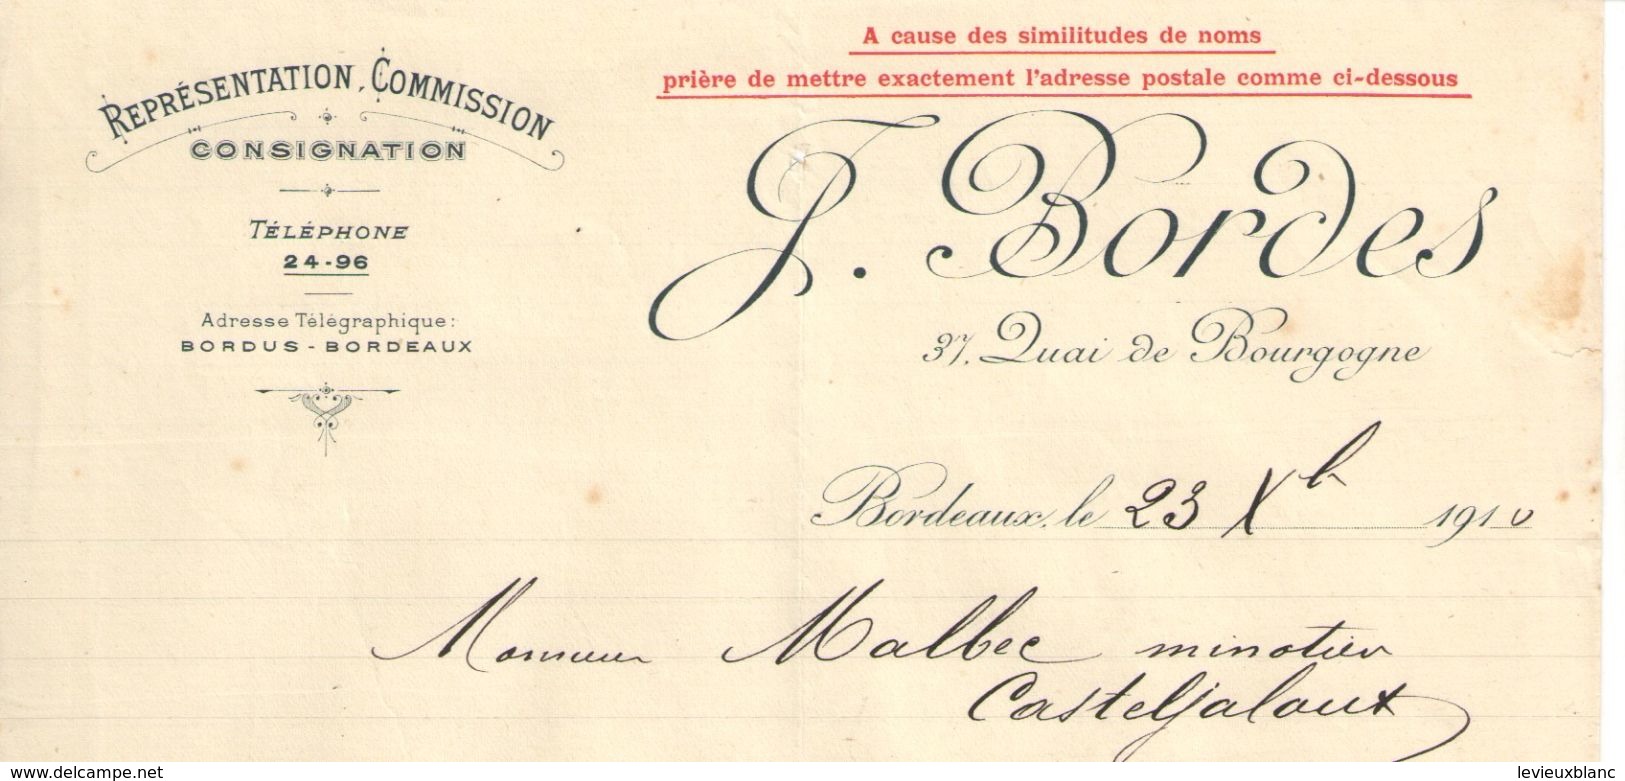 A cause des similitudes de noms
prière de mettre exactement l'adresse postale comme ci-dessous
REPRÉSENTATION, COMMISSION
CONSIGNATION
TÉLÉPHONE
24-96
Adresse Télégraphique:
BORDUS - BORDEAUX
J. Bordes
37, Quai de Bourgogne
Bordeaux, le 23 Xb 1910
Monsieur Malbec minotier
Casteljaloux
delcampe.net
levieuxblanc